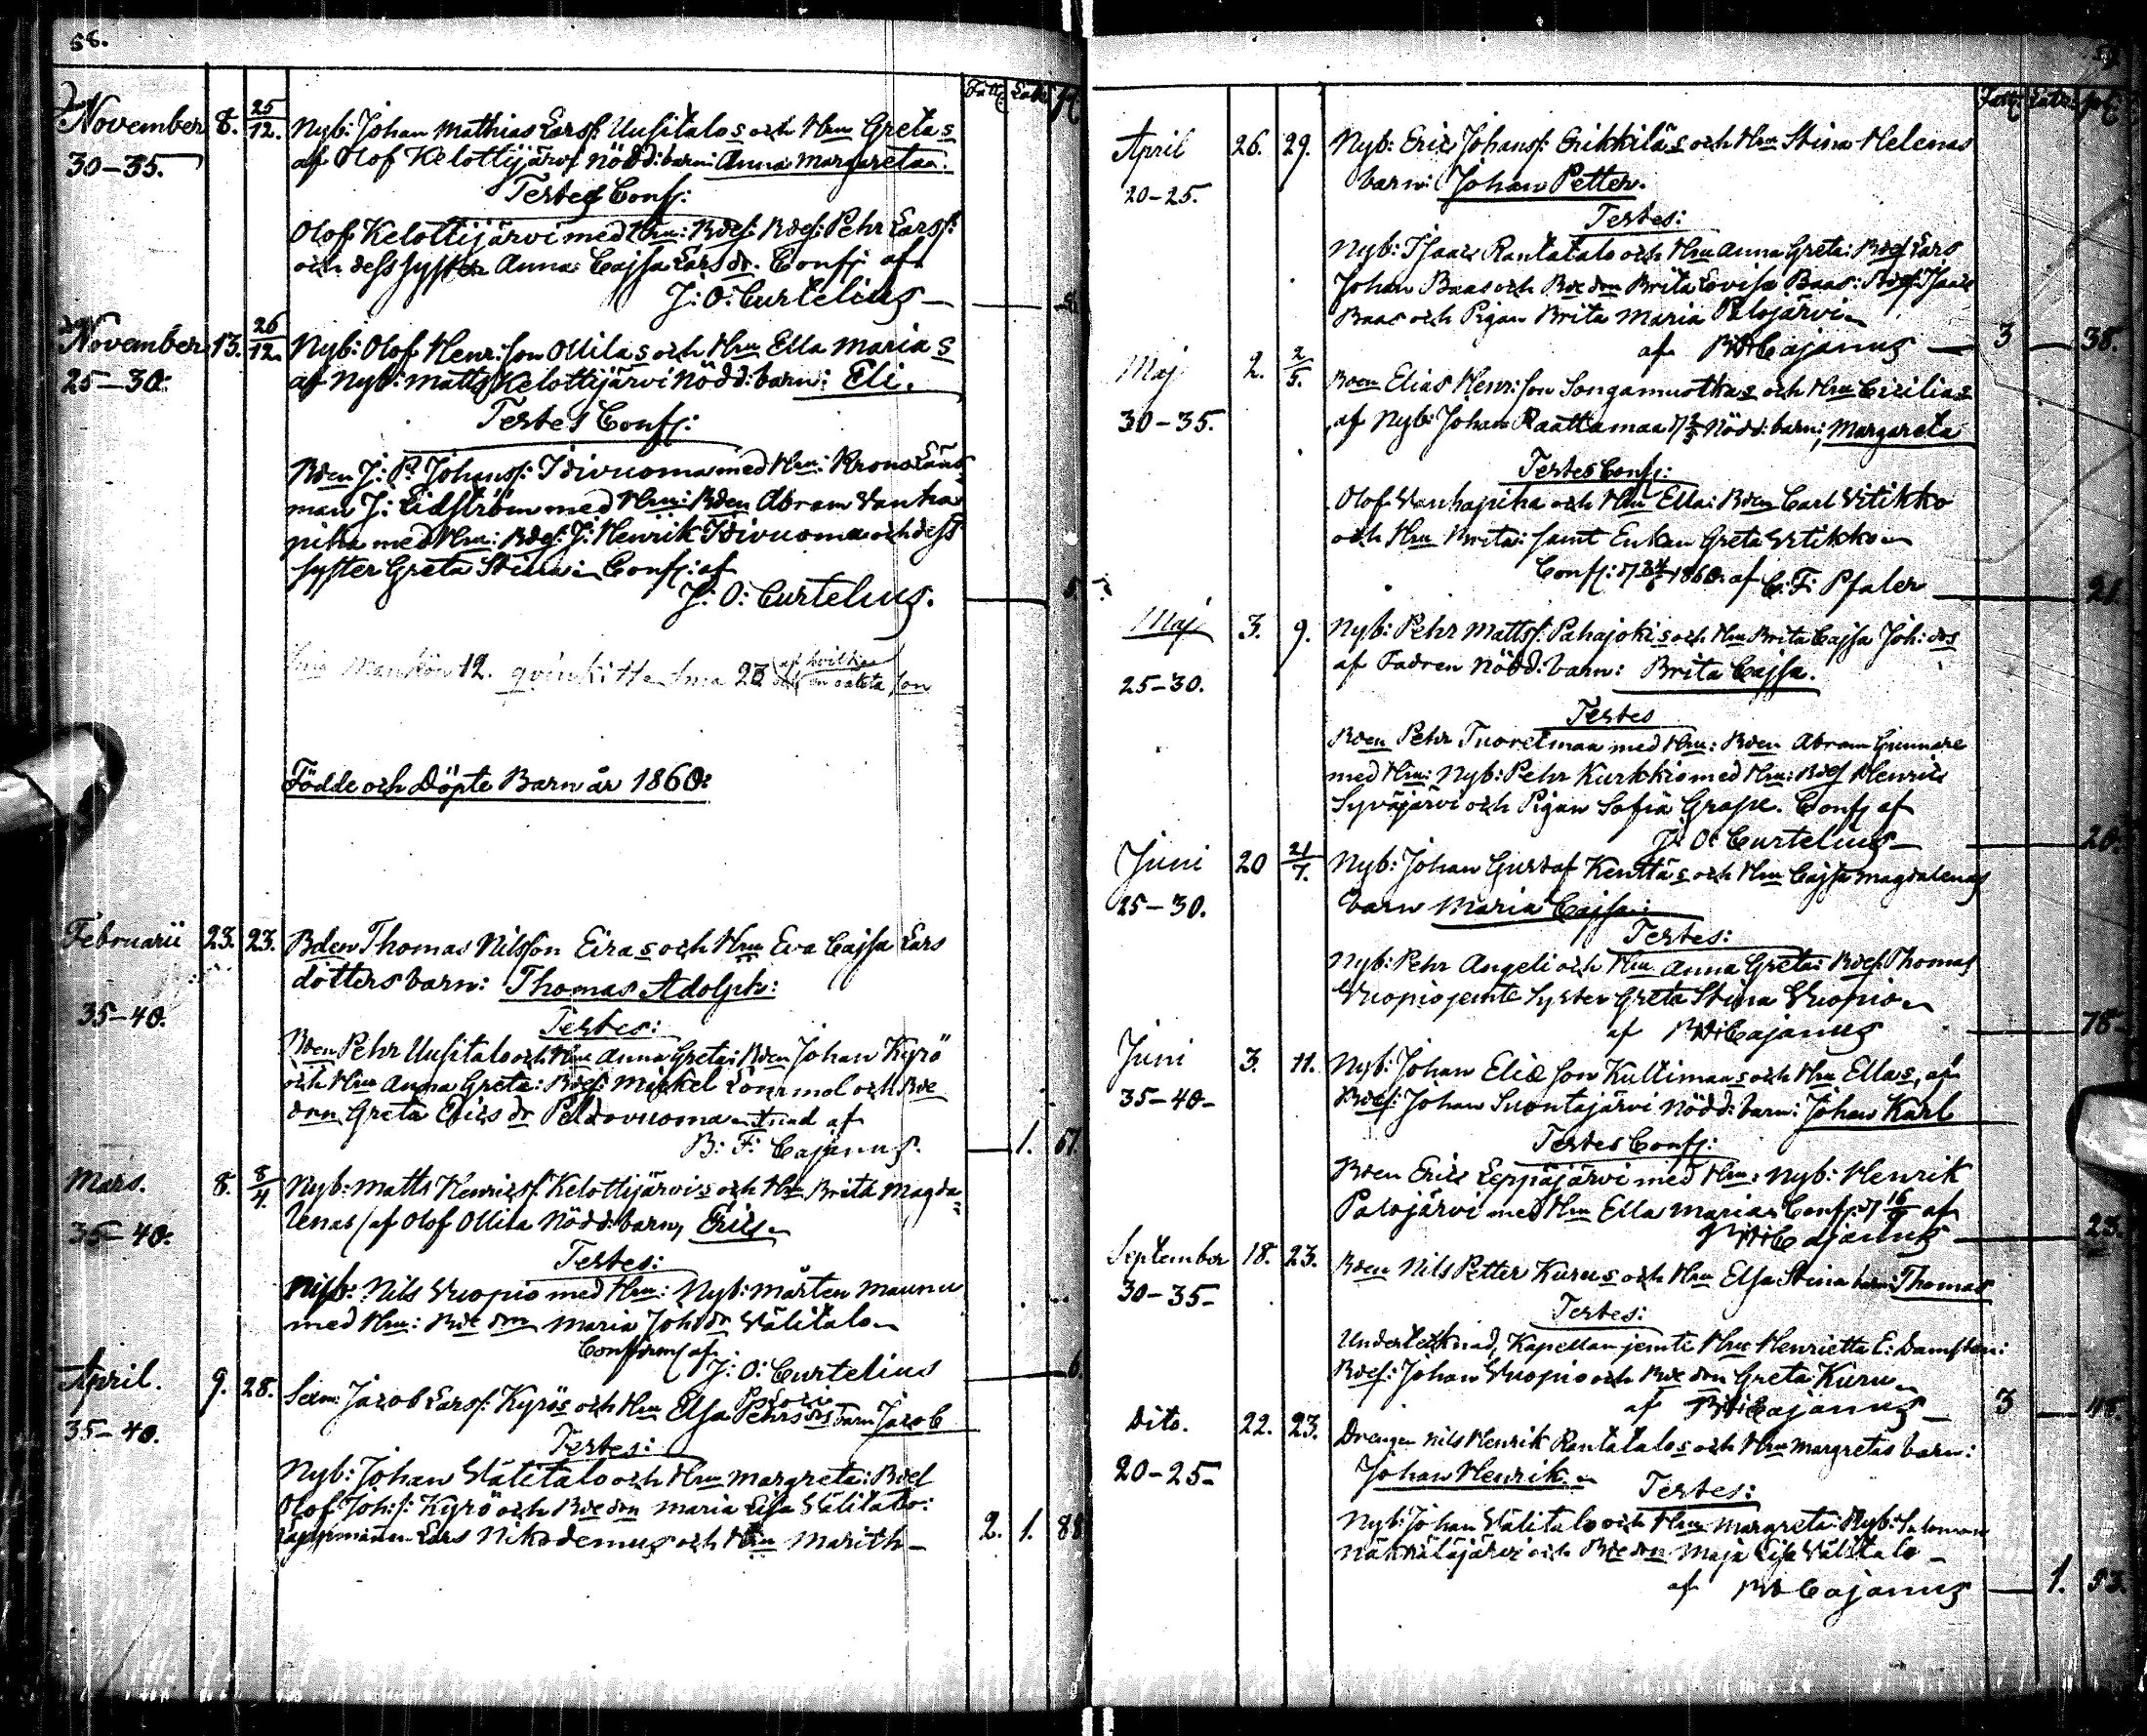 58.
Fatt. Lada
November 8. 25/12. Nyb: Johan Mathias Larss: Uusitalos och Hru Gretas
30-35. af Olof Kelottijärvi nödd: barn: Anna Margareta.
Testes Conf:
Olof Kelottijärvi med Hru: Pehr Larss:
och dess syster Anna Cajsa Lars dr. Conf: af
J: O: Curtelius
November 13. 26/12 Nyb: Olof Henr: son Ollilas och Hru Ella Marias
25-30. af Nyb: Matts Kelottijärvi nödd: barn: Eli.
Testes Conf:
Bden J: P. Johanss: Idivuoma med Hru: Krono Läns
man J: Lidström med Hru: Bden Abram Vanha
piha med Hru: J: Henrik Idivuoma och dess
syster Greta Stina: Conf: af
J: O: Curtelius. 5
mankön 12. qvink:
Födde och Döpte Barn år 1860:
Februarii 23. 23. Bden Thomas Nilsson Eiras och Hru Eva Cajsa Lars
35-40. dotters barn: Thomas Adolph:
Testes:
Bden Pehr Uusitalo och Hru Anna Greta: Bden Johan Kyrö
och Hru Anna Greta: Mickel och Bde
don Greta Erics dr Peldovuoma af
B: F: Cajanus. 1. 51.
Mars. 8. 8/4. Nyb: Matts Henricss: Kelottijärvis och Hru Brita Magda=
35-40. lenas (af Olof Ollila nödd: barn, Eric
Testes:
Nyb: Nils Vuopio med Hru: Nyb: Mårten Maunu
med Hru: Bde don Maria Joh: dr Välitalo
Confirm: af
J: O: Curtelius 6.
April. 9. 28. Jacob Larss: Kyrös och Hru Elsa Pehrs drs barn Jacob
35-40. Testes:
Nyb: Johan Välitalo och Hru Margreta:
Olof Joh: s: Kyrö och Bde don Maria Lisa Välitalo:
Lappmannen Lars Nikodemus och Hru Marith 2. 1. 88
59.
Fatt: Lada
April 26. 29. Nyb: Eric Johanss: Erikkiläs och Hru Stina Helenas
20-25. barn: Johan Petter.
Testes:
Nyb: Isaac Rantatalo och Hru Anna Greta: Lars
Johan Baas och Bde don Brita Lovisa Baas: Isaac
Baas och Pigan Brita Maria Palojärvi
af Cajanus 3 38.
Maj 2. 2/5. Bden Elias Henr: son Songamuotkas och Hru Cicilias
30-35. af Nyb: Johan Raattamaa nödd: barn: Margareta
Testes Conf:
Olof Vanhapiha och Hru Ella: Bden Carl Vitikko
och Hru Brita: samt Enkan Greta Vitikko
Conf: 1860. af C. F: Pfaler 21.
Maj 3. 9. Nyb: Pehr Mattss: Pahajokis och Hru Brita Cajsa Joh: drs
25-30. af Fadren nödd: barn: Brita Cajsa.
Testes
Bden Pehr Tuoremaa med Hru: Bden Abram Gunnare
med Hru: Nyb: Pehr Kurkkio med Hru: Henric
Syväjärvi och Pigan Sofia Grape. Conf af
J: O: Curtelius 20.
Juni 20 21/7. Nyb: Johan Gustaf Kenttäs och Hru Cajsa Magdalenas
25-30. barn Maria Cajsa:
Testes:
Nyb: Pehr Angeli och Hru Anna Greta: Thomas
Vuopio jemte syster Greta Stina Vuopio
af Cajanus 78
Juni 3. 11. Nyb: Johan Elias son Kultimaas och Hru Ellas, af
35-40- Johan Suontajärvi nödd: barn: Johan Karl
Testes Conf:
Bden Eric Leppäjärvi med Hru: Nyb: Henrik
Palojärvi med Hru Ella Maria: Conf: af
Cajanus 23.
September 18. 23. Bden Nils Petter Kurus och Hru Elsa Stina barn: Thomas
30-35- Testes:
Undertecknad, Kapellan jemte Hru Henrietta E:
Johan Vuopio och Bde don Greta Kuru
af Cajanus 3 48.
Dito. 22. 23. Drengen Nils Henrik Rantatalos och Hru Margretas barn:
20-25- Johan Henrik
Testes:
Nyb: Johan Välitalo och Hru Margreta: Nyb: Salomon
Näkkäläjärvi och Bde don Maja Lisa Välitalo
af Cajanus 1. 53.